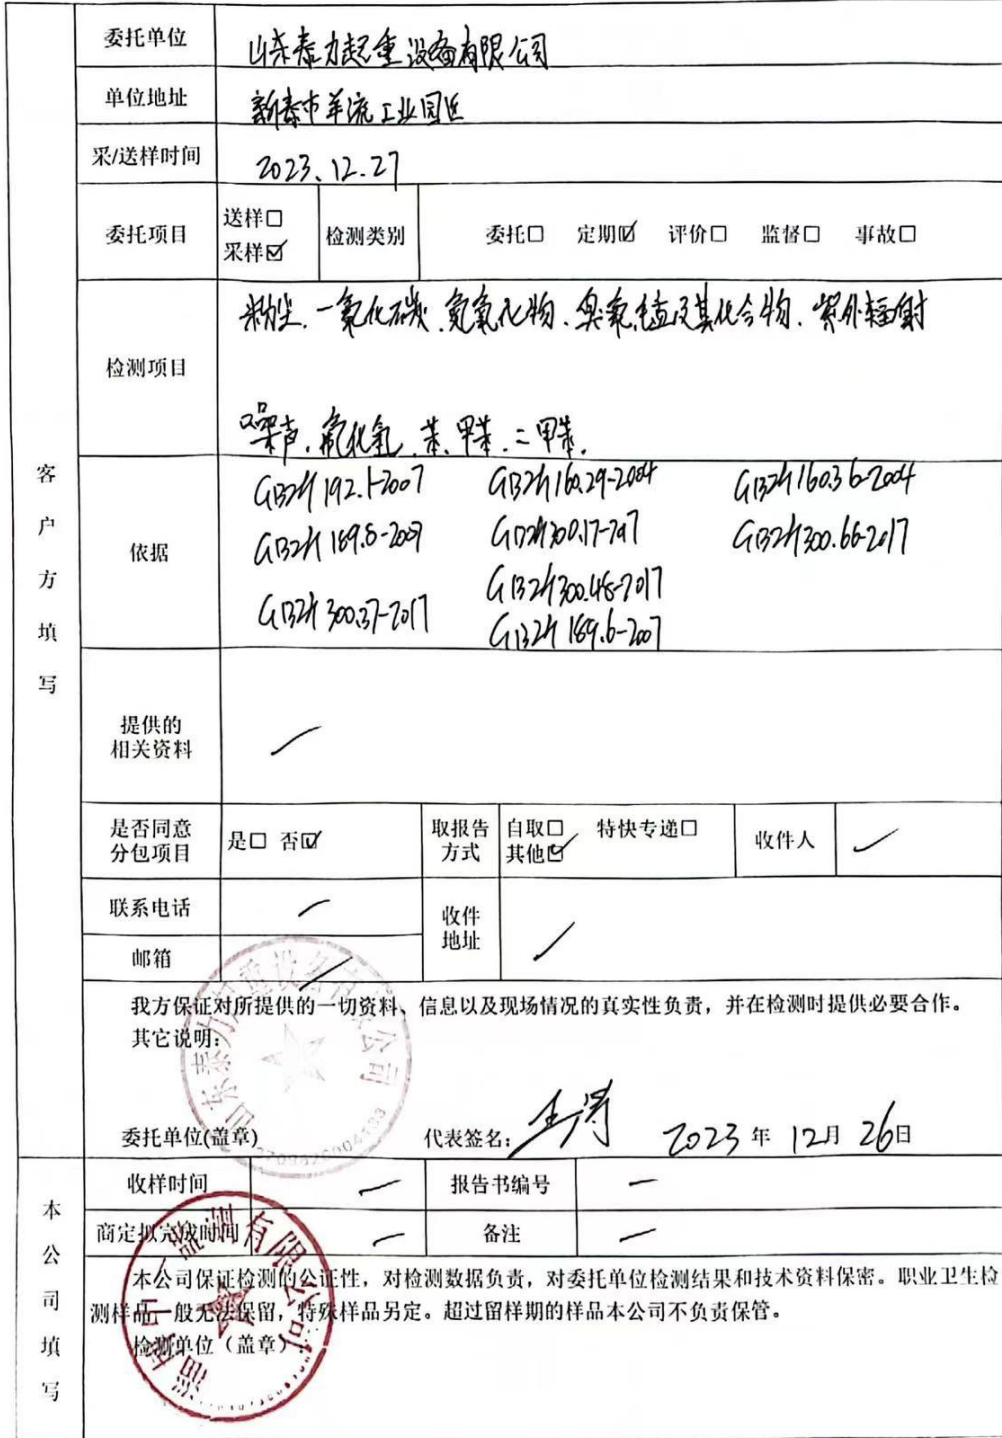 委托单位 山东泰力起重设备有限公司
单位地址 新泰市羊流工业园区
采/送样时间 2023.12.27
委托项目 送样□ 采样☑ 检测类别 委托□ 定期☑ 评价□ 监督□ 事故□
检测项目 粉尘、一氧化碳、氮氧化物、臭氧、锰及其化合物、紫外辐射
噪声、氟化氢、苯、甲苯、二甲苯、
依据 GBZ/T 192.1-2007 GBZ/T 160.29-2004 GBZ/T 160.36-2004
GBZ/T 189.8-2007 GBZ/T 300.17-2017 GBZ/T 300.66-2017
GBZ/T 300.48-2017
GBZ/T 300.37-2017
GBZ/T 189.6-2007
客户方填写
提供的相关资料
是否同意分包项目 是□ 否☑ 取报告方式 自取□ 特快专递□ 其他☑ 收件人
联系电话 收件地址
邮箱
我方保证对所提供的一切资料、信息以及现场情况的真实性负责，并在检测时提供必要合作。
其它说明：
山东泰力起重设备有限公司
委托单位(盖章) 代表签名： 2023年 12月 26日
收样时间 报告书编号
商定拟完成时间 备注
本公司填写
本公司保证检测的公证性，对检测数据负责，对委托单位检测结果和技术资料保密。职业卫生检
测样品一般无法保留，特殊样品另定。超过留样期的样品本公司不负责保管。
检测单位（盖章）：